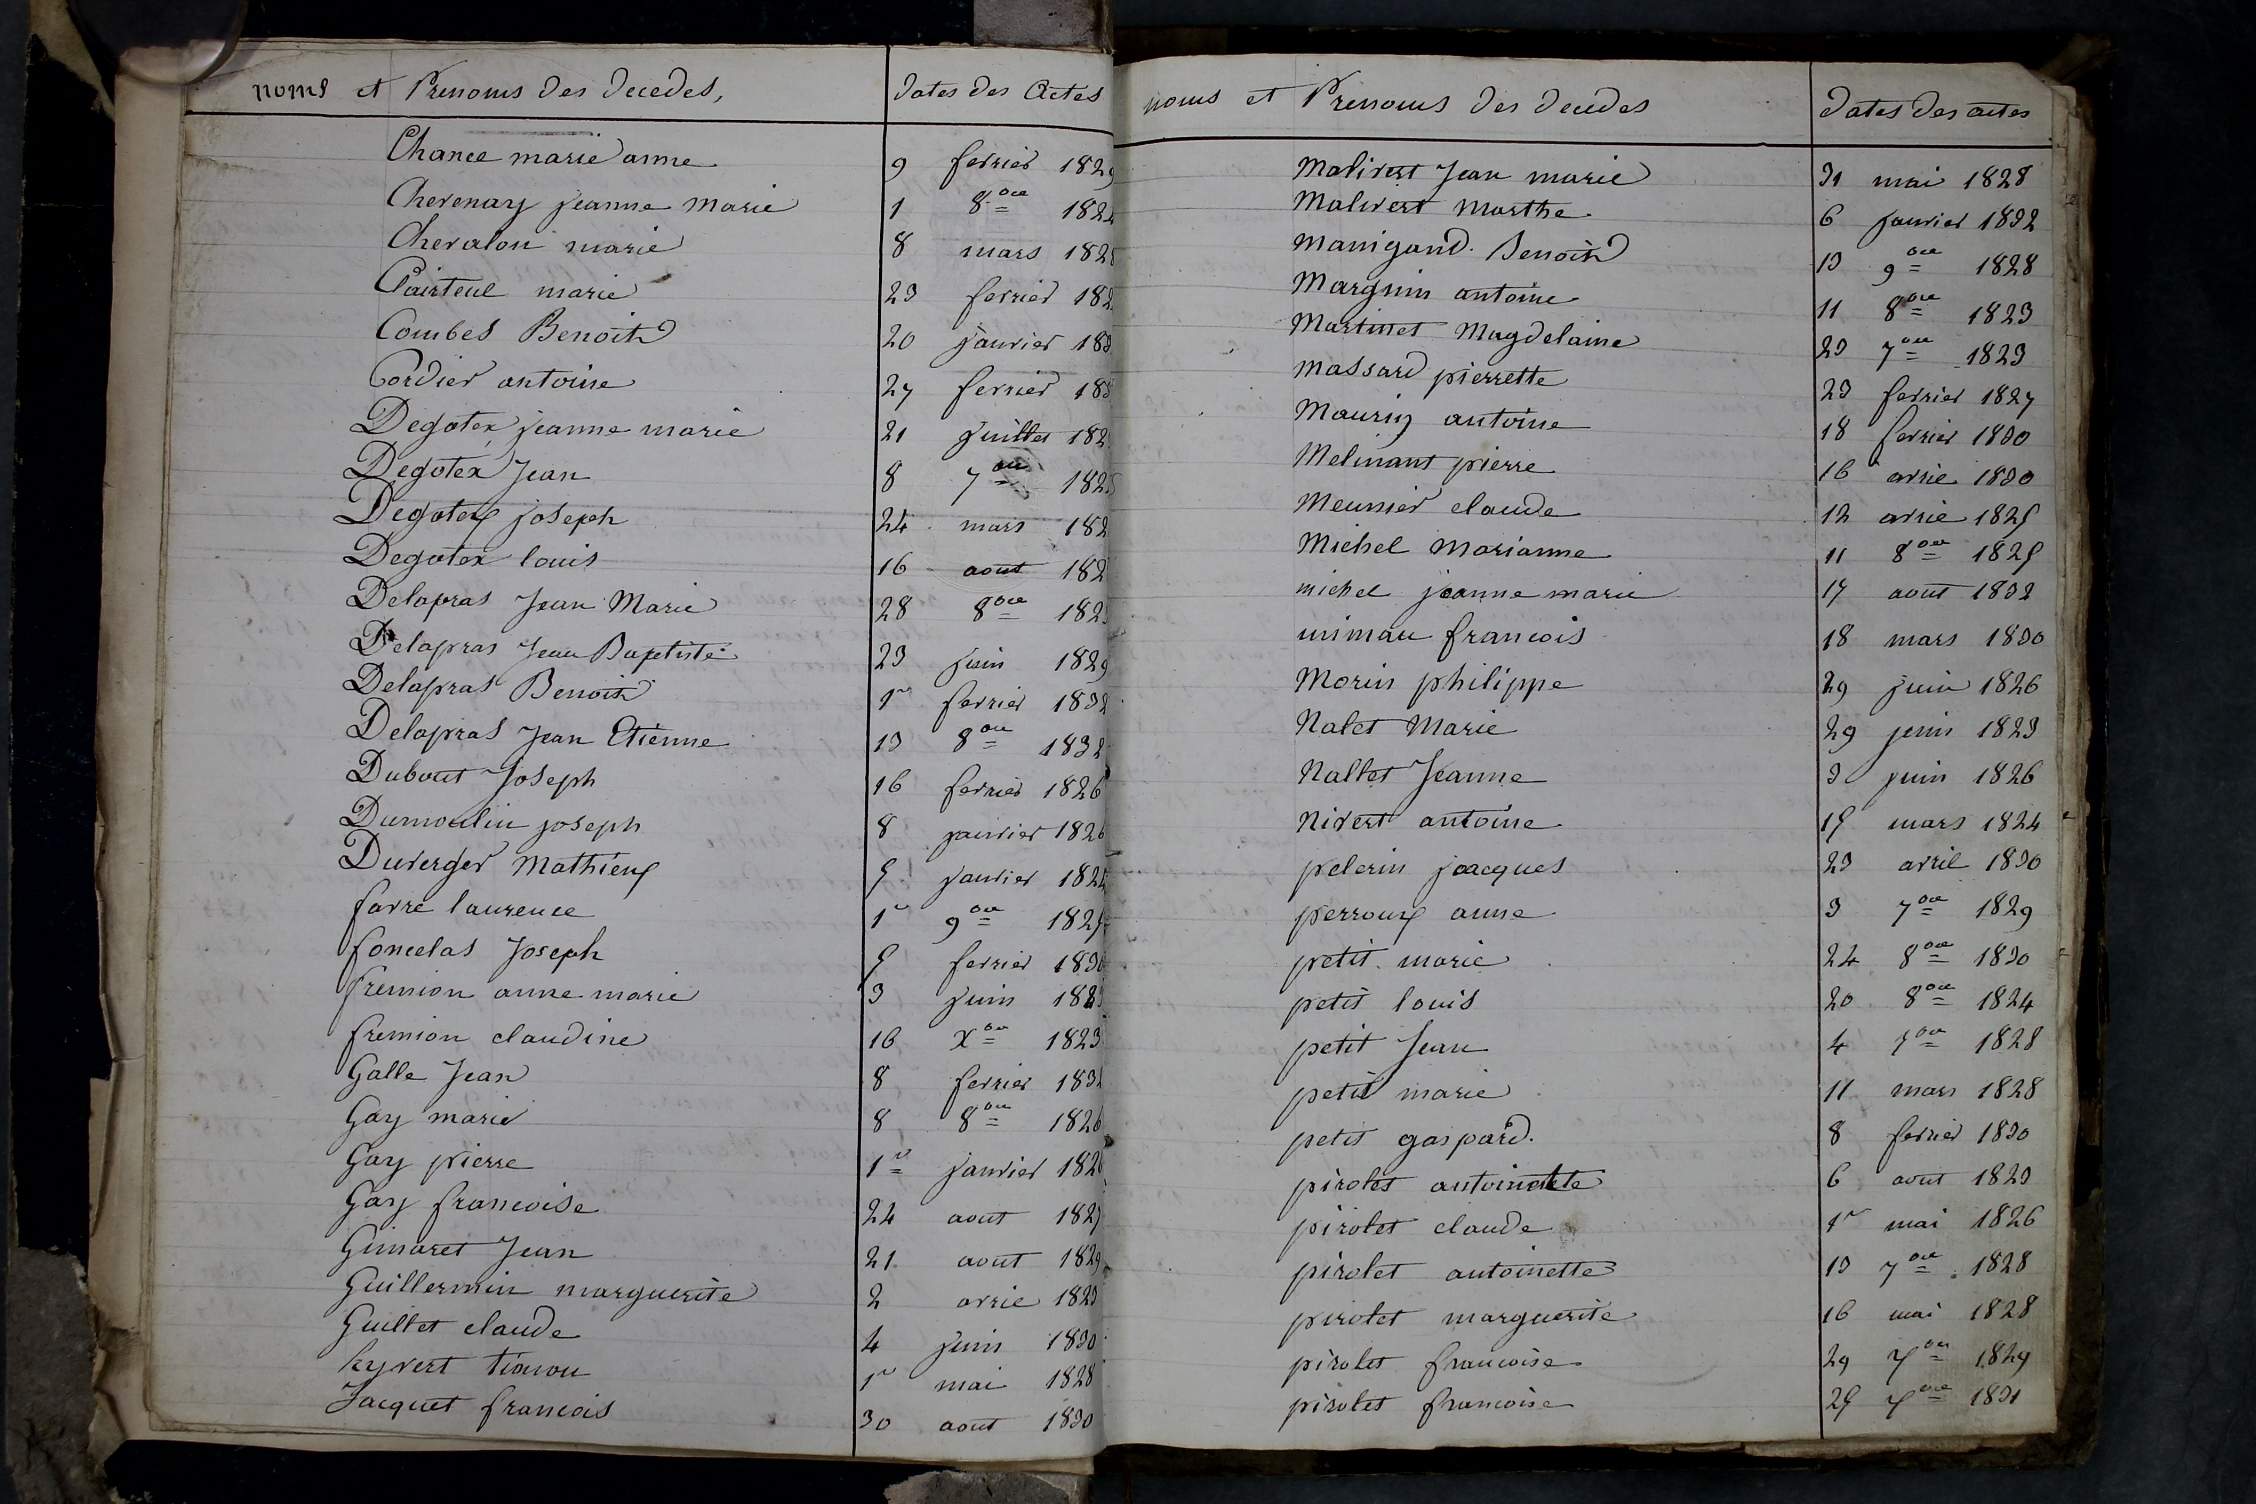 noms et Prenoms des decedes, dates des Actes
Chanee marie anne 9 fevrier 1829
Chevenay jeanne Marie 1 8bre
Chevalon marie 8 mars 1828
marie 23 fevrier
Combes Benoit 20 janvier
Cordier antoine 27 fevrier
Degotex jeanne marie 21 juillet
Degotex Jean 8 7bre
Degotex joseph 24 mars
Degotex louis 16 aout
Delapras Jean Marie 28 8bre
Delapras Jean Baptiste 23 juin 1829
Delapras Benoit 1er fevrier 1832
Delapras Jean Etienne 13 8bre 1832
Dubout Joseph 16 fevrier 1826
Dumoulin joseph 8 janvier 1826
Duverger Mathieux 5 janvier 1824
favre laurence 1er 9bre 1825
foncelas Joseph 5 fevrier 1830
fremion anne marie 3 juin
fremion claudine 16 Xbre 1823
Galle Jean 8 fevrier
Gay marie 8 8bre 1826
Gay pierre 1er janvier
Gay francoise 24 aout
Gimaret Jean 21 aout 1829
Guillermin marguerite 2 avrie 1823
Guillet claude 4 juin 1830
hyvert 1er mai 1828
Jacquet francois 30 aout 1830
noms et Prenoms des decedes dates des actes
Malivert Jean marie 31 mai 1828
Malivert Marthe 6 janvier 1832
Manigand Benoit 13 9bre 1828
Marguin antoine 11 8bre 1823
Martinet Magdelaine 23 7bre 1823
Massard pierrette 23 fevrier 1827
Maurin antoine 18 fevrier 1830
Melinant pierre 16 avrie 1830
Meunier claude 12 avrie 1825
Michel Marianne 11 8bre 1825
michel jeanne marie 17 aout 1832
mimau francois 18 mars 1830
Morin philippe 29 juin 1826
Nalet Marie 29 juin 1823
Nallet Jeanne 3 juin 1826
Nivert antoine 15 mars 1824
pelerin jacques 23 avril 1830
perroux anne 3 7bre 1829
petit marie 24 8bre 1830
petit louis 20 8bre 1824
petit Jean 4 7bre 1828
petit marie 11 mars 1828
petit gaspard. 8 fevrier 1830
pirolet antoinette 6 aout 1823
pirolet claude 1er mai 1826
pirolet antoinette 13 7bre 1828
pirolet marguerite 16 mai 1828
pirolet francoise 29 7bre 1829
pirolet francoise 25 7bre 1831